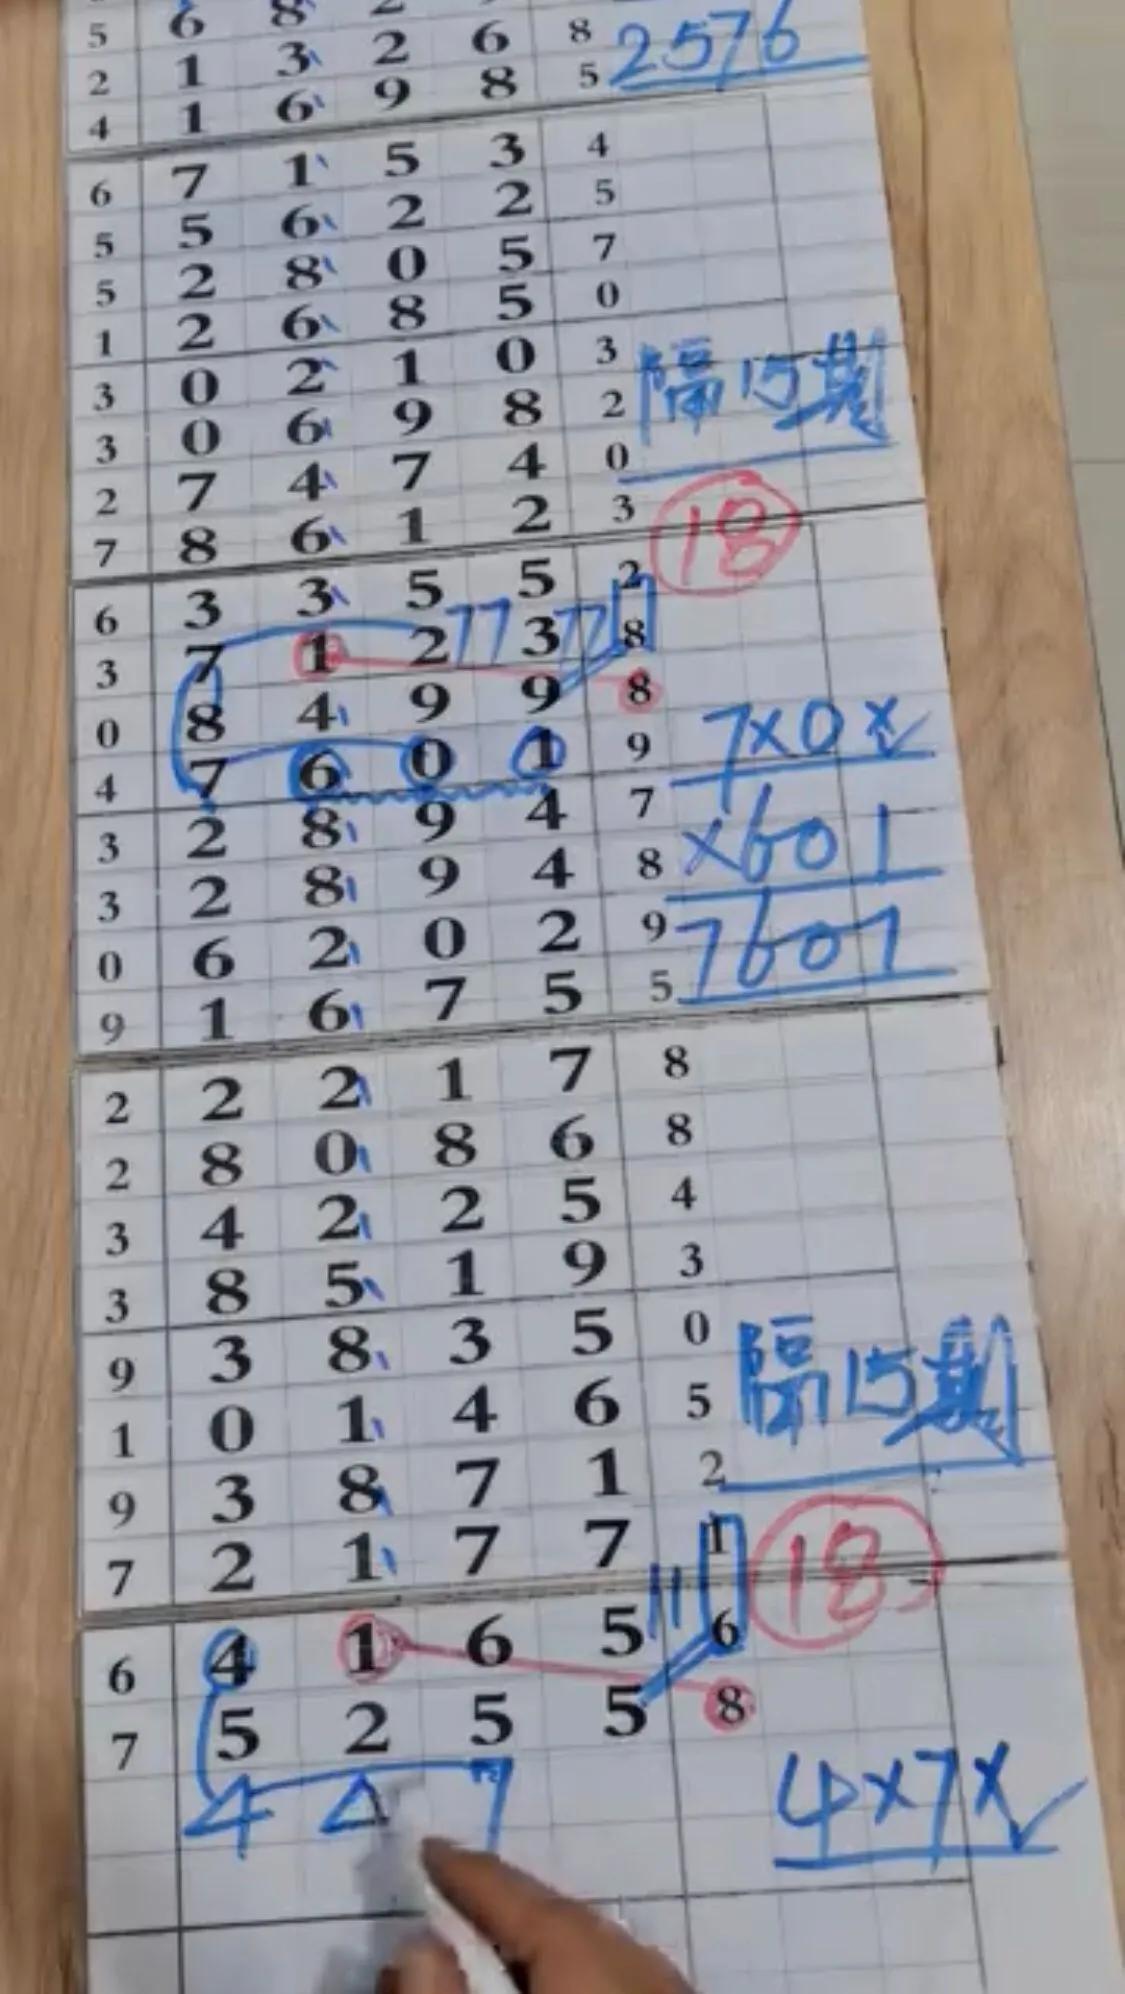 5 6 8 2
2 1 3 2 6 8 2576
4 1 6 9 8 5
6 7 1 5 3 4
5 5 6 2 2 5
5 2 8 0 5 7
1 2 6 8 5 0
3 0 2 1 0 3 隔15期
3 0 6 9 8 2
2 7 4 7 4 0
7 8 6 1 2 3 18
6 3 3 5 5 2
3 7 1 2 77 3 77 8
0 8 4 9 9 8
4 7 6 0 1 9 7×0×
3 2 8 9 4 7
3 2 8 9 4 8 ×601
0 6 2 0 2 9 7601
9 1 6 7 5 5
2 2 2 1 7 8
2 8 0 8 6 8
3 4 2 2 5 4
3 8 5 1 9 3
9 3 8 3 5 0 隔15期
1 0 1 4 6 5
9 3 8 7 1 2
7 2 1 7 7 1 18
6 4 1 6 5 11 6
7 5 2 5 5 8
4 △ 7 4×7×